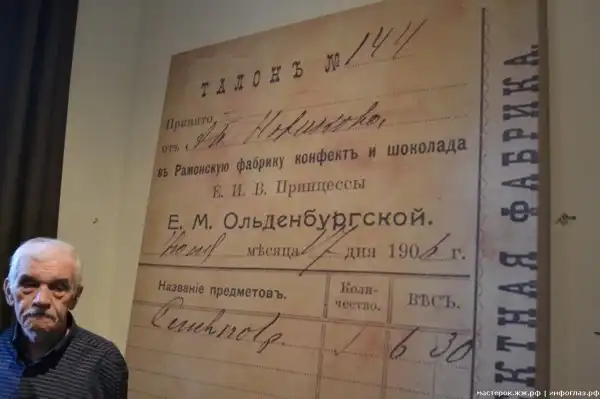 ТАЛОНЪ № 144
Принято
отъ Новикова,
въ Рамонскую фабрику конфектъ и шоколада
Е. И. В. Принцессы
Е. М. Ольденбургской.
мѣсяца 17 дня 1906 г.
Названіе предметовъ. Коли-чество. ВѢСЪ.
1 6 30
КТНАЯ ФАБРИКА.
мастерок.жж.рф | инфоглаз.рф